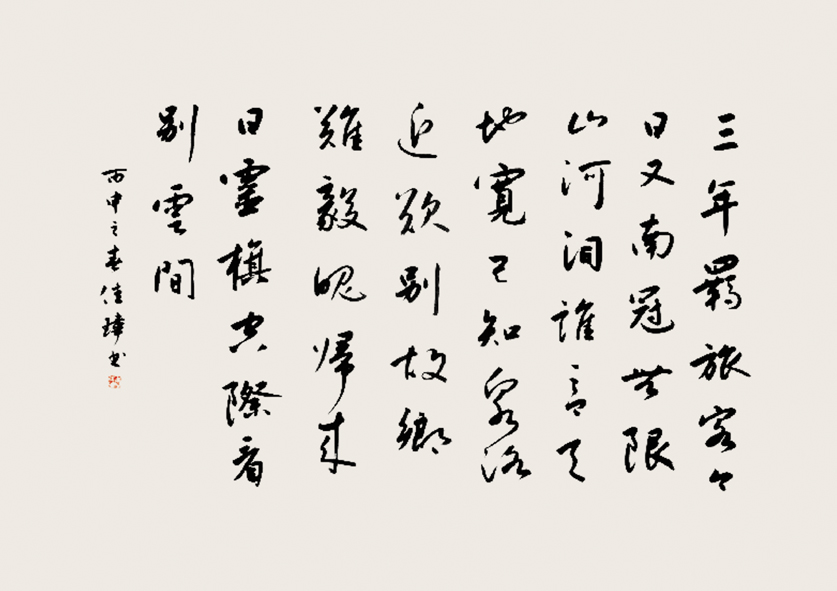 三年羈旅客今
日又南冠無限
山河泪誰言天
地寬已知泉路
近欲别故鄉
難毅魄歸来
日靈旗空際看
别雲間
丙申之春佳璋书